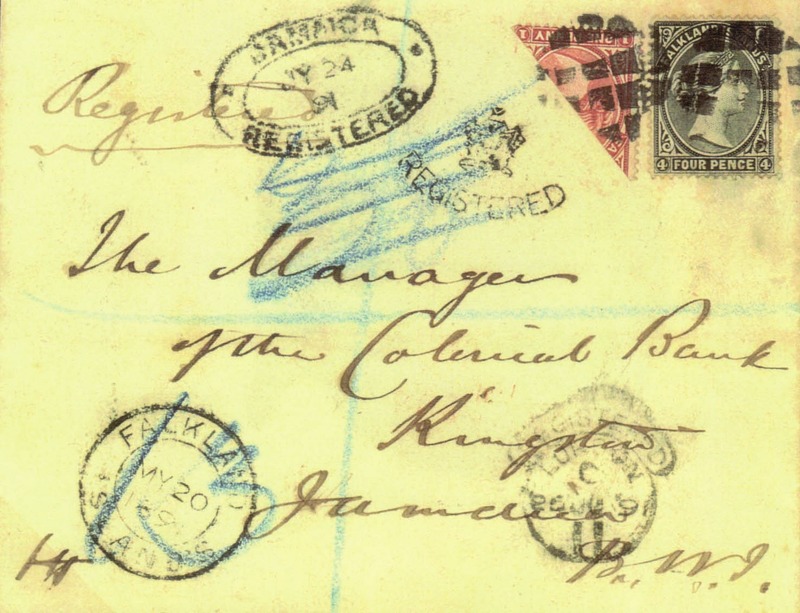 JAMAICA
MY 24
91
REGISTERED
ONE PENNY
FALKLAND ISLANDS
4 FOUR PENCE 4
Registered
REGISTERED
The Manager
of the Colonial Bank
Kingston
Jamaica
B.W.I.
FALKLAND ISLANDS
MY 20
REGISTERED
LONDON
91